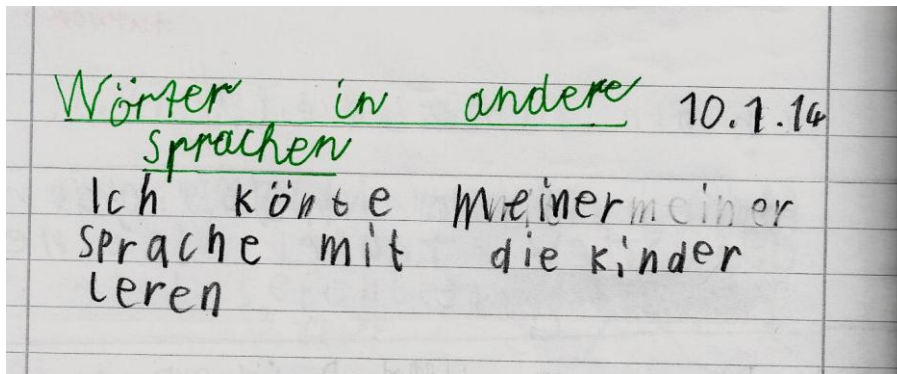 Wörter in andere 10.1.14
sprachen
Ich könte meiner meiner
sprache mit die kinder
leren